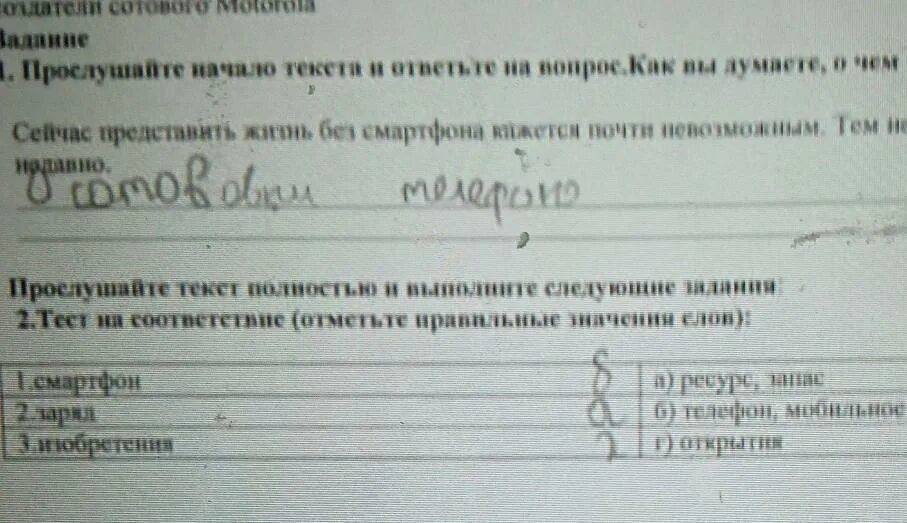 создатели сотового Motorola
Задание
1. Прослушайте начало текста и ответьте на вопрос.Как вы думаете, о чем
Сейчас представить жизнь без смартфона кажется почти невозможным. Тем не
недавно.
О сотов телефоно
Прослушайте текст полностью и выполните следующие задания:
2.Тест на соответствие (отметьте правильные значения слов):
1.смартфон б а) ресурс, запас
2.заряд а б) телефон, мобильное
3.изобретения г г) открытия